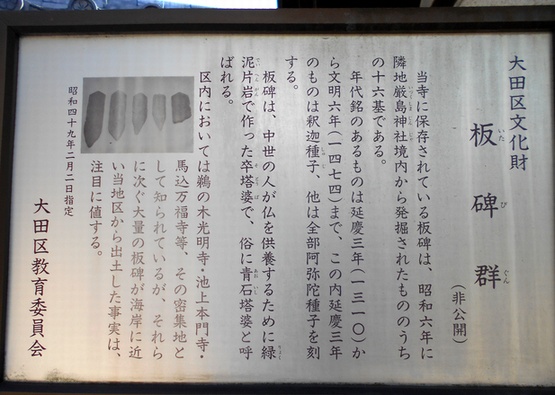 大田区文化財
板碑群
いたびぐん
(非公開)
当寺に保存されている板碑は、昭和六年に
隣地厳島神社境内から発掘されたもののうち
の十六基である。
年代銘のあるものは延慶三年(一三一〇)か
ら文明六年(一四七四)まで、この内延慶三年
のものは釈迦種子、他は全部阿弥陀種子を刻
する。
板碑は、中世の人が仏を供養するために緑
泥片岩で作った卒塔婆で、俗に青石塔婆と呼
ばれる。
区内においては鵜の木光明寺・池上本門寺・
馬込万福寺等、その密集地と
して知られているが、それら
に次ぐ大量の板碑が海岸に近
い当地区から出土した事実は、
注目に値する。
昭和四十九年二月二日指定
大田区教育委員会